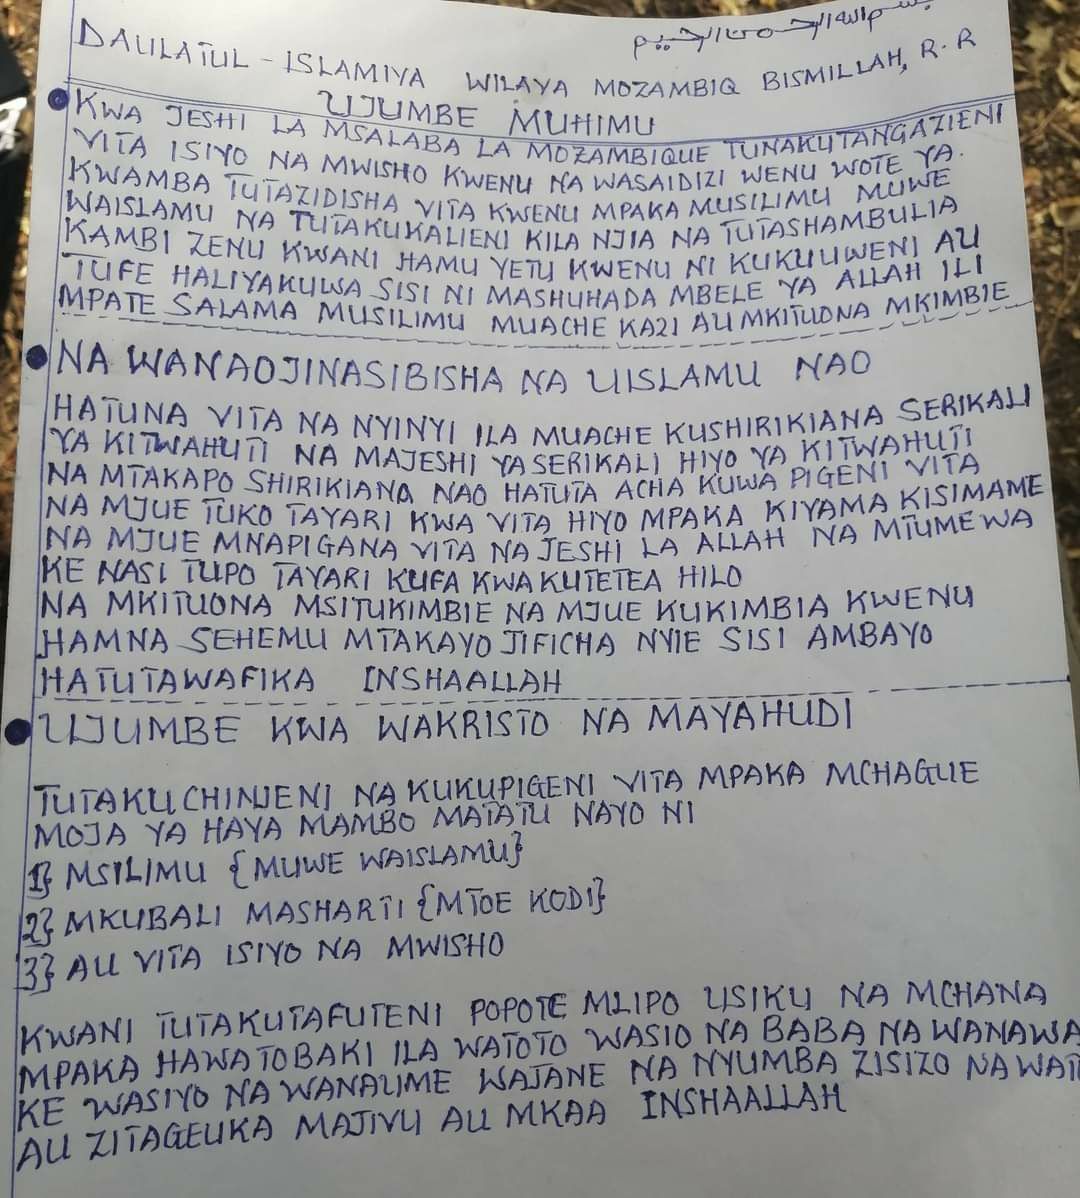 بسم الله الرحمن الرحيم
DAULATUL - ISLAMIYA WILAYA MOZAMBIQ BISMILLAH, R.R
UJUMBE MUHIMU
KWA JESHI LA MSALABA LA MOZAMBIQUE TUNAKUTANGAZIENI
VITA ISIYO NA MWISHO KWENU NA WASAIDIZI WENU WOTE YA.
KWAMBA TUTAZIDISHA VITA KWENU MPAKA MUSILIMU MUWE
WAISLAMU NA TUTAKUKALIENI KILA NJIA NA TUTASHAMBULIA
KAMBI ZENU KWANI HAMU YETU KWENU NI KUKUUWENI AU
TUFE HALIYAKUWA SISI NI MASHUHADA MBELE YA ALLAH ILI
MPATE SALAMA MUSILIMU MUACHE KAZI AU MKITUONA MKIMBIE
NA WANAOJINASIBISHA NA UISLAMU NAO
HATUNA VITA NA NYINYI ILA MUACHE KUSHIRIKIANA SERIKALI
YA KITWAHUTI NA MAJESHI YA SERIKALI HIYO YA KITWAHUTI
NA MTAKAPO SHIRIKIANA NAO HATUTA ACHA KUWA PIGENI VITA
NA MJUE TUKO TAYARI KWA VITA HIYO MPAKA KIYAMA KISIMAME
NA MJUE MNAPIGANA VITA NA JESHI LA ALLAH NA MTUMEWA
KE NASI TUPO TAYARI KUFA KWA KUTETEA HILO
NA MKITUONA MSITUKIMBIE NA MJUE KUKIMBIA KWENU
HAMNA SEHEMU MTAKAYO JIFICHA NYIE SISI AMBAYO
HATUTAWAFIKA INSHAALLAH
UJUMBE KWA WAKRISTO NA MAYAHUDI
TUTAKUCHINJENI NA KUKUPIGENI VITA MPAKA MCHAGUE
MOJA YA HAYA MAMBO MATATU NAYO NI
1} MSILIMU {MUWE WAISLAMU}
2} MKUBALI MASHARTI {MTOE KODI}
3} AU VITA ISIYO NA MWISHO
KWANI TUTAKUTAFUTENI POPOTE MLIPO USIKU NA MCHANA
MPAKA HAWATOBAKI ILA WATOTO WASIO NA BABA NA WANAWA
KE WASIYO NA WANAUME WAJANE NA NYUMBA ZISIZO NA
AU ZITAGEUKA MAJIVU AU MKAA INSHAALLAH